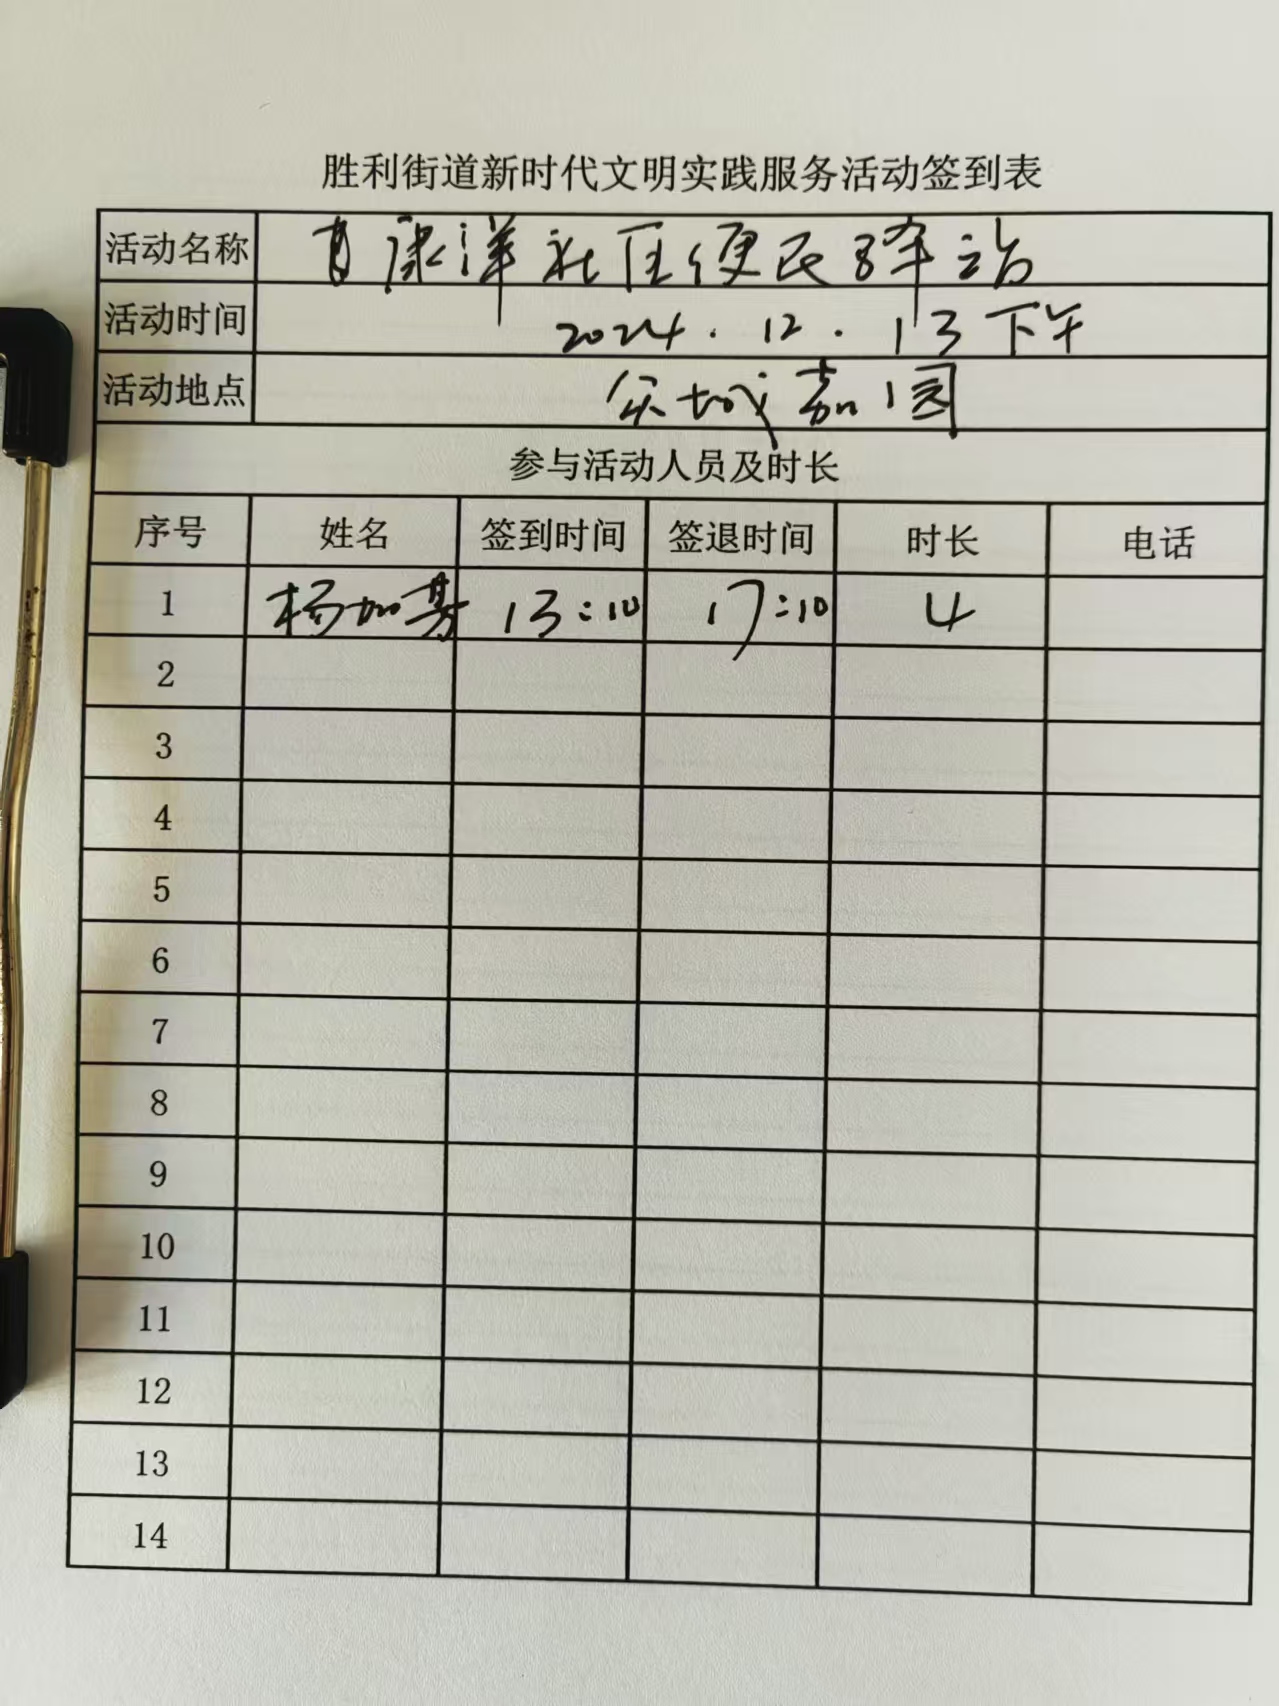 胜利街道新时代文明实践服务活动签到表
活动名称 康洋社区便民驿站
活动时间 2024.12.13下午
活动地点 城嘉园
参与活动人员及时长
序号 姓名 签到时间 签退时间 时长 电话
1 杨加 13:10 17:10 4
2
3
4
5
6
7
8
9
10
11
12
13
14